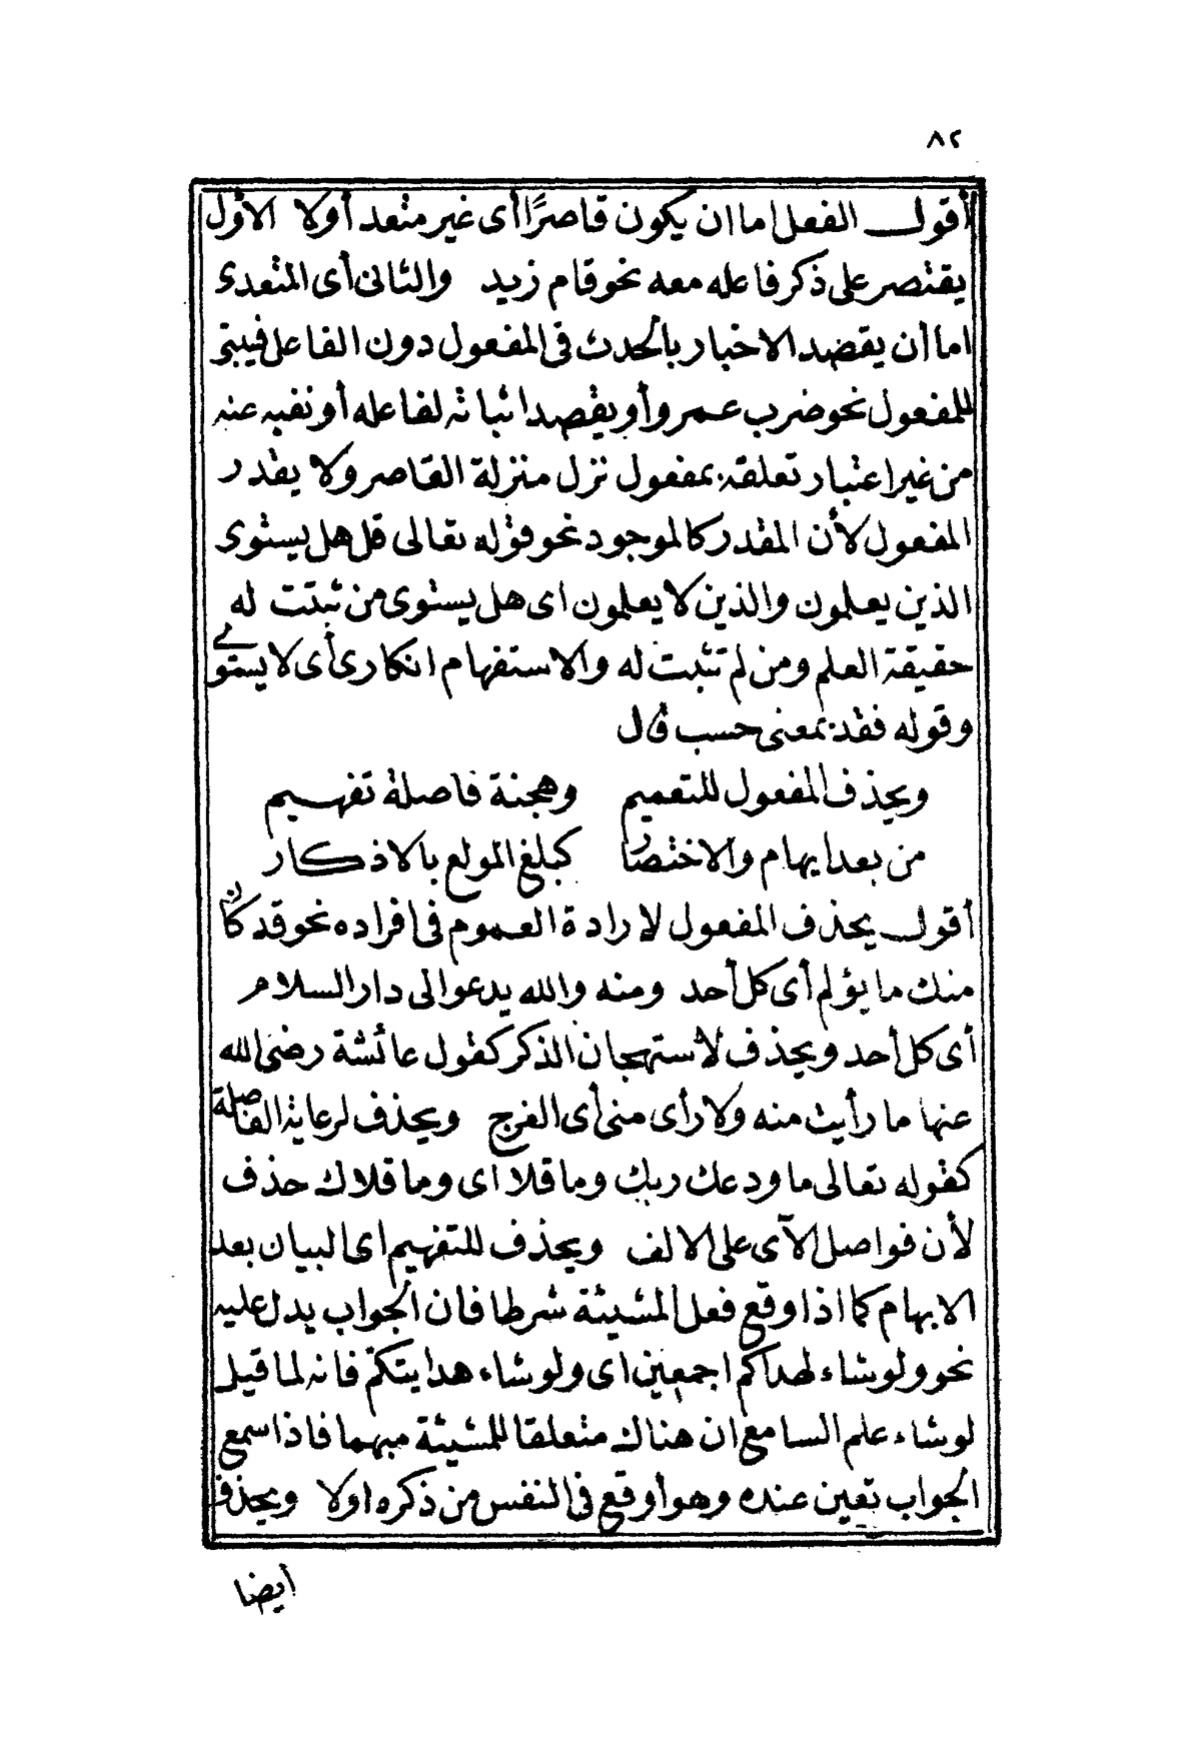 ٨٢
أقول الفعل اما ان يكون قاصرًا أى غير متعد أولا الاوّل
يقتصر على ذكر فاعله معه نحو قام زيد والثانى أى المتعدى
اما أن يقصد الاخبار بالحدث فى المفعول دون الفاعل فيبنى
للمفعول نحو ضرب عمرو أو يقصد اثباته لفاعله أو نفيه عنه
من غير اعتبار تعلقه بمفعول نزل منزلة القاصر ولا يقدر
المفعول لأن المقدر كالموجود نحو قوله تعالى قل هل يستوى
الذين يعلمون والذين لا يعلمون اى هل يستوى من ثبتت له
حقيقة العلم ومن لم تثبت له والاستفهام انكارى أى لا يستوى
وقوله فقد بمعنى حسب قال
ويحذف المفعول للتعميم وهجنة فاصلة تفهيم
من بعد ابهام والاختصار كبلغ المولع بالاذكار
أقول يحذف المفعول لارادة العموم فى افراده نحو قد كان
منك ما يؤلم أى كل أحد ومنه والله يدعو الى دار السلام
أى كل أحد ويحذف لاستهجان الذكر كقول عائشة رضى الله
عنها ما رأيت منه ولا رأى منى أى الفرج ويحذف لرعاية الفاصلة
كقوله تعالى ما ودعك ربك وما قلا اى وما قلاك حذف
لأن فواصل الآى على الالف ويحذف للتفهيم اى البيان بعد
الابهام كما اذا وقع فعل المشيئة شرطا فان الجواب يدل عليه
نحو ولو شاء لهداكم اجمعين اى ولو شاء هدايتكم فانه لما قيل
لو شاء علم السامع ان هناك متعلقا للمشيئة مبهما فاذا سمع
الجواب تعين عنده وهو أوقع فى النفس من ذكره اولا ويحذف
أيضا